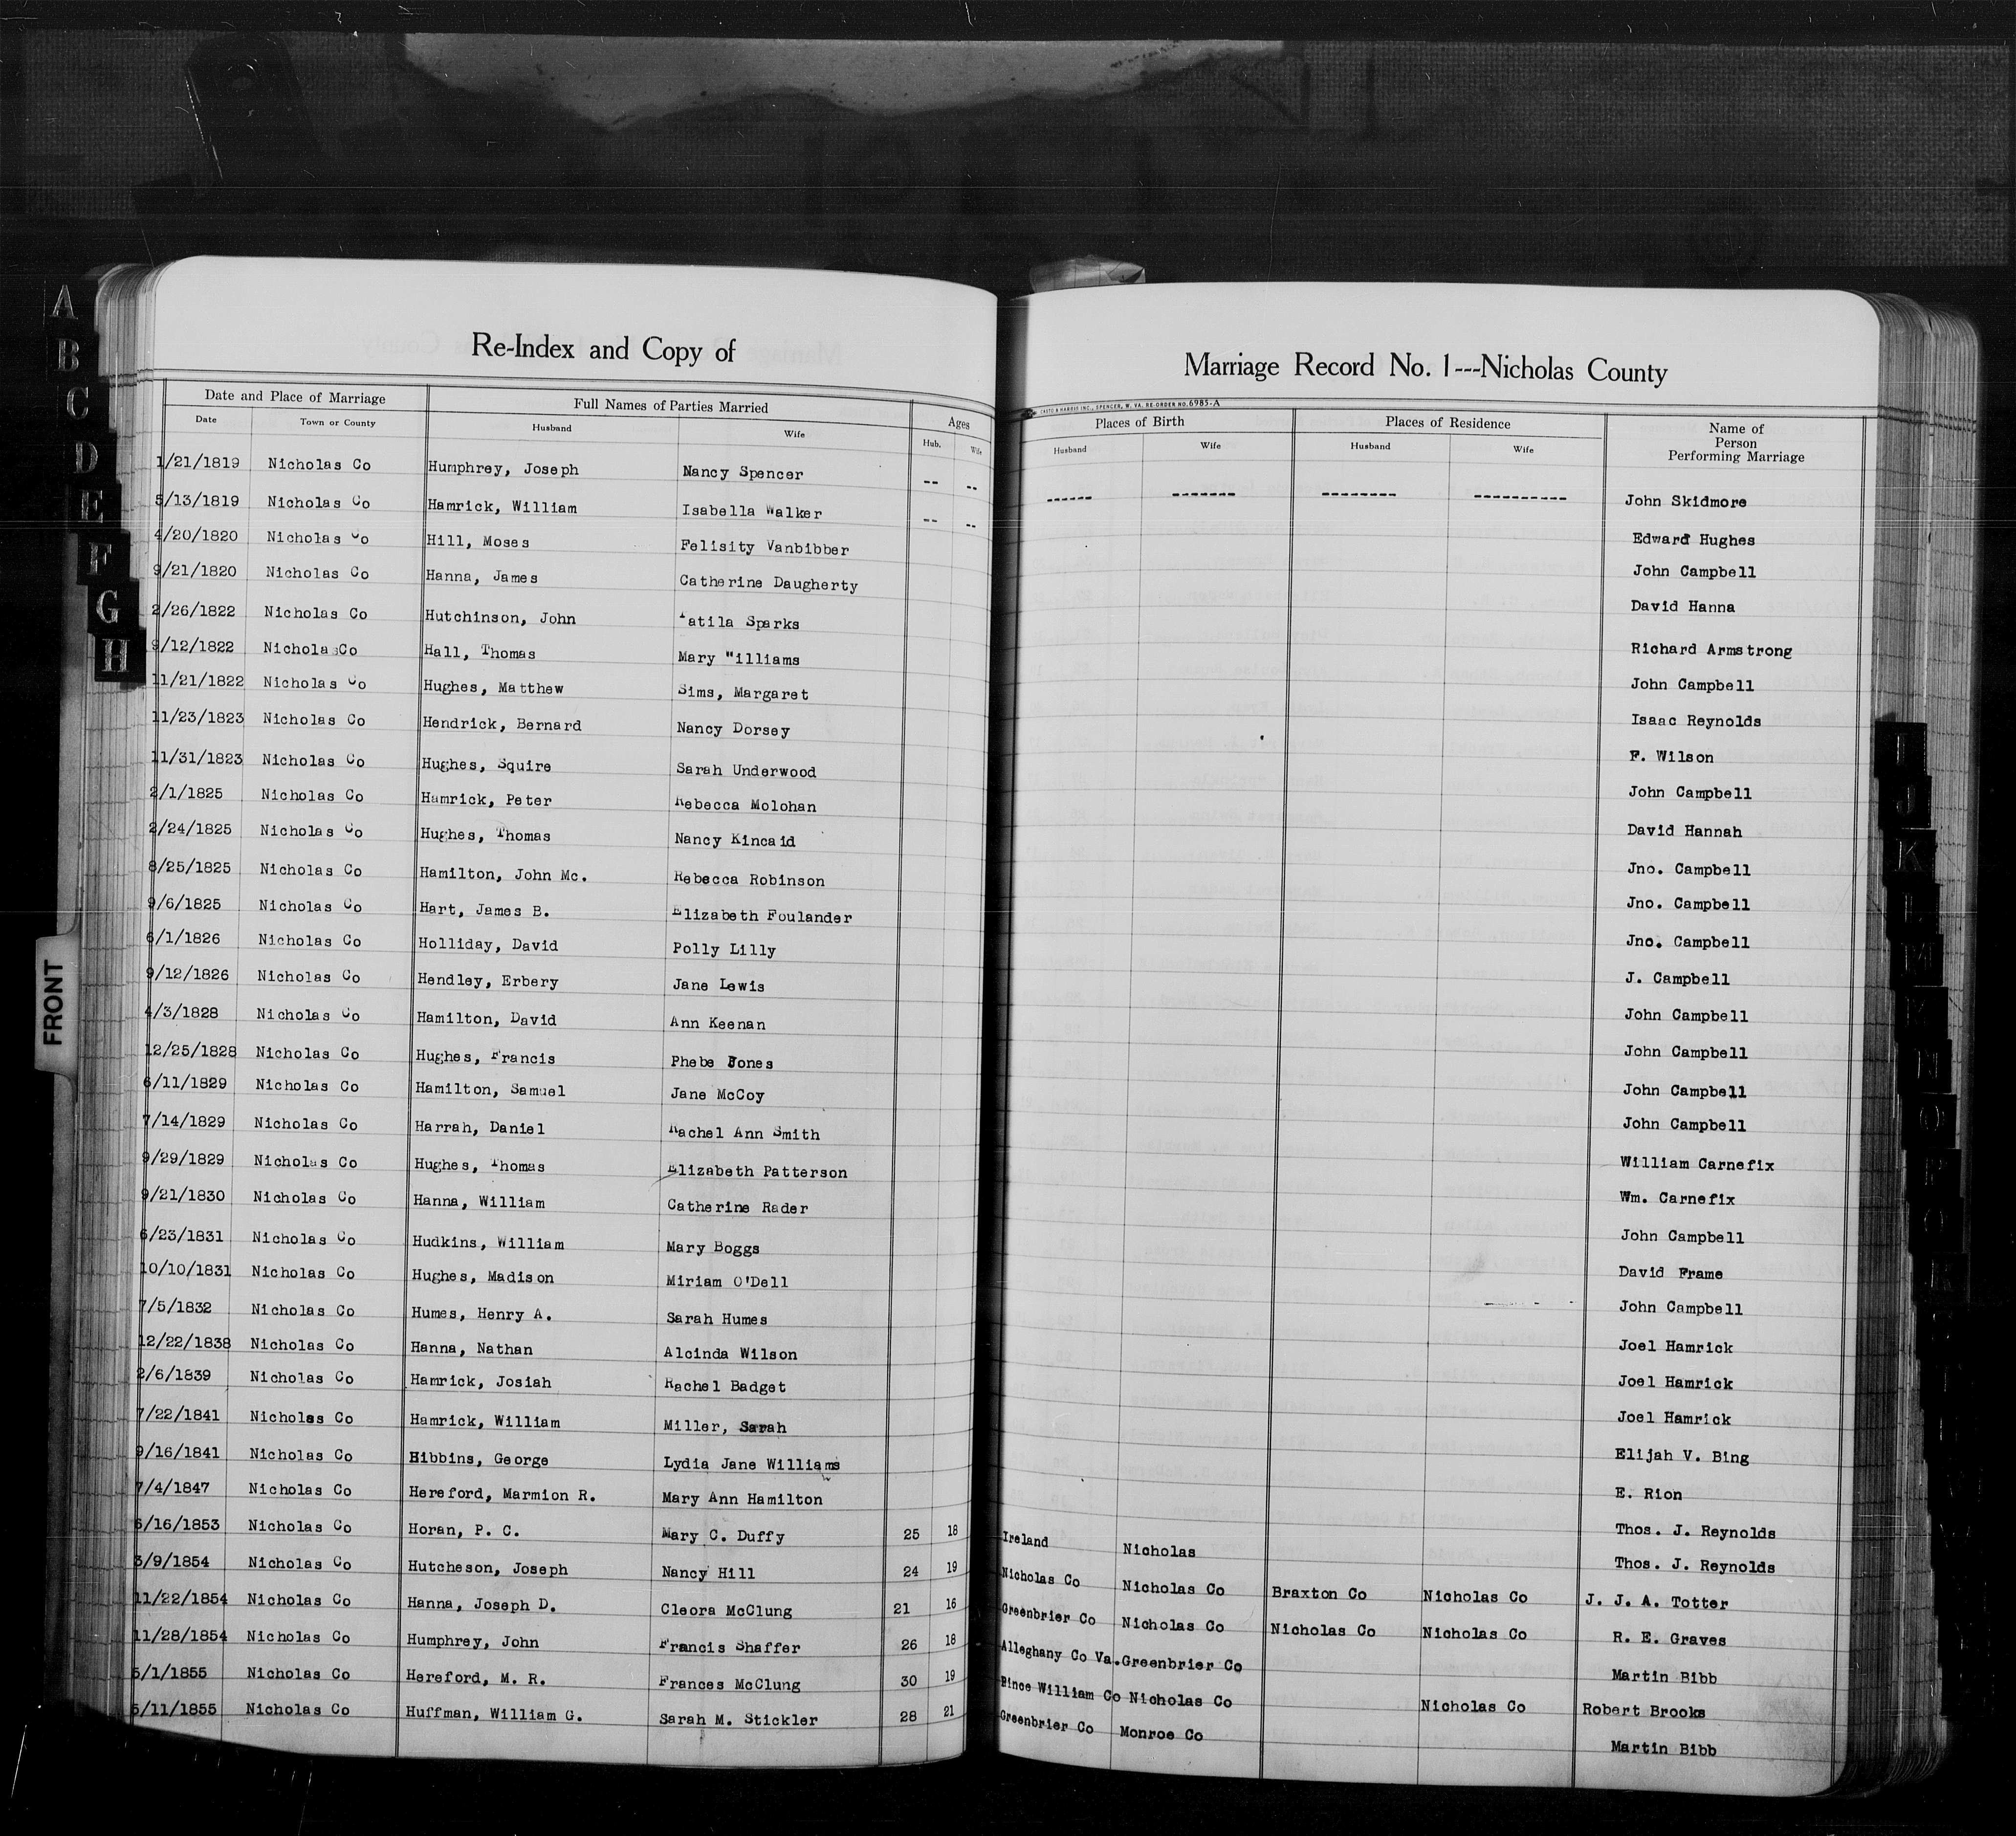 Re-Index and Copy of
Marriage Record No. 1---Nicholas County
CASTO & HARRIS INC., SPENCER, W. VA. RE-ORDER NO. 6985-A
Date and Place of Marriage Full Names of Parties Married Ages Places of Birth Places of Residence Name of Person Performing Marriage
Date Town or County Husband Wife Hub. Wife Husband Wife Husband Wife
1/21/1819 Nicholas Co Humphrey, Joseph Nancy Spencer -- -- ------ ------- -------- ---------- John Skidmore
5/13/1819 Nicholas Co Hamrick, William Isabella Walker -- -- Edward Hughes
4/20/1820 Nicholas Co Hill, Moses Felisity Vanbibber John Campbell
9/21/1820 Nicholas Co Hanna, James Catherine Daugherty David Hanna
2/26/1822 Nicholas Co Hutchinson, John Sparks Richard Armstrong
9/12/1822 Nicholas Co Hall, Thomas Mary Williams John Campbell
11/21/1822 Nicholas Co Hughes, Matthew Sims, Margaret Isaac Reynolds
11/23/1823 Nicholas Co Hendrick, Bernard Nancy Dorsey F. Wilson
11/31/1823 Nicholas Co Hughes, Squire Sarah Underwood John Campbell
2/1/1825 Nicholas Co Hamrick, Peter Rebecca Molohan David Hannah
2/24/1825 Nicholas Co Hughes, Thomas Nancy Kincaid Jno. Campbell
8/25/1825 Nicholas Co Hamilton, John Mc. Rebecca Robinson Jno. Campbell
9/6/1825 Nicholas Co Hart, James B. Elizabeth Foulander Jno. Campbell
6/1/1826 Nicholas Co Holliday, David Polly Lilly J. Campbell
9/12/1826 Nicholas Co Hendley, Erbery Jane Lewis John Campbell
4/3/1828 Nicholas Co Hamilton, David Ann Keenan John Campbell
12/25/1828 Nicholas Co Hughes, Francis Phebe Jones John Campbell
6/11/1829 Nicholas Co Hamilton, Samuel Jane McCoy John Campbell
7/14/1829 Nicholas Co Harrah, Daniel Rachel Ann Smith William Carnefix
9/29/1829 Nicholas Co Hughes, Thomas Elizabeth Patterson Wm. Carnefix
9/21/1830 Nicholas Co Hanna, William Catherine Rader John Campbell
6/23/1831 Nicholas Co Hudkins, William Mary Boggs David Frame
10/10/1831 Nicholas Co Hughes, Madison Miriam O'Dell John Campbell
7/5/1832 Nicholas Co Humes, Henry A. Sarah Humes Joel Hamrick
12/22/1838 Nicholas Co Hanna, Nathan Alcinda Wilson Joel Hamrick
2/6/1839 Nicholas Co Hamrick, Josiah Rachel Badget Joel Hamrick
7/22/1841 Nicholas Co Hamrick, William Miller, Sarah Elijah V. Bing
9/16/1841 Nicholas Co Hibbins, George Lydia Jane Williams E. Rion
7/4/1847 Nicholas Co Hereford, Marmion R. Mary Ann Hamilton Thos. J. Reynolds
6/16/1853 Nicholas Co Horan, P. C. Mary C. Duffy 25 18 Ireland Nicholas Thos. J. Reynolds
3/9/1854 Nicholas Co Hutcheson, Joseph Nancy Hill 24 19 Nicholas Co Nicholas Co Braxton Co Nicholas Co J. J. A. Totter
11/22/1854 Nicholas Co Hanna, Joseph D. Cleora McClung 21 16 Greenbrier Co Nicholas Co Nicholas Co Nicholas Co R. E. Graves
11/28/1854 Nicholas Co Humphrey, John Francis Shaffer 26 18 Alleghany Co Va. Greenbrier Co Martin Bibb
5/1/1855 Nicholas Co Hereford, M. R. Frances McClung 30 19 Pince William Co Nicholas Co Nicholas Co Robert Brooks
5/11/1855 Nicholas Co Huffman, William G. Sarah M. Stickler 28 21 Greenbrier Co Monroe Co Martin Bibb
A
B
C
D
E
F
G
H
FRONT
J
K
L
M